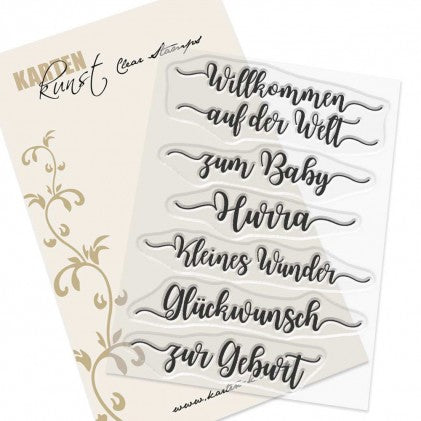 KARTEN
Kunst Clear Stamps
Willkommen
auf der Welt
zum Baby
Hurra
Kleines Wunder
Glückwunsch
zur Geburt